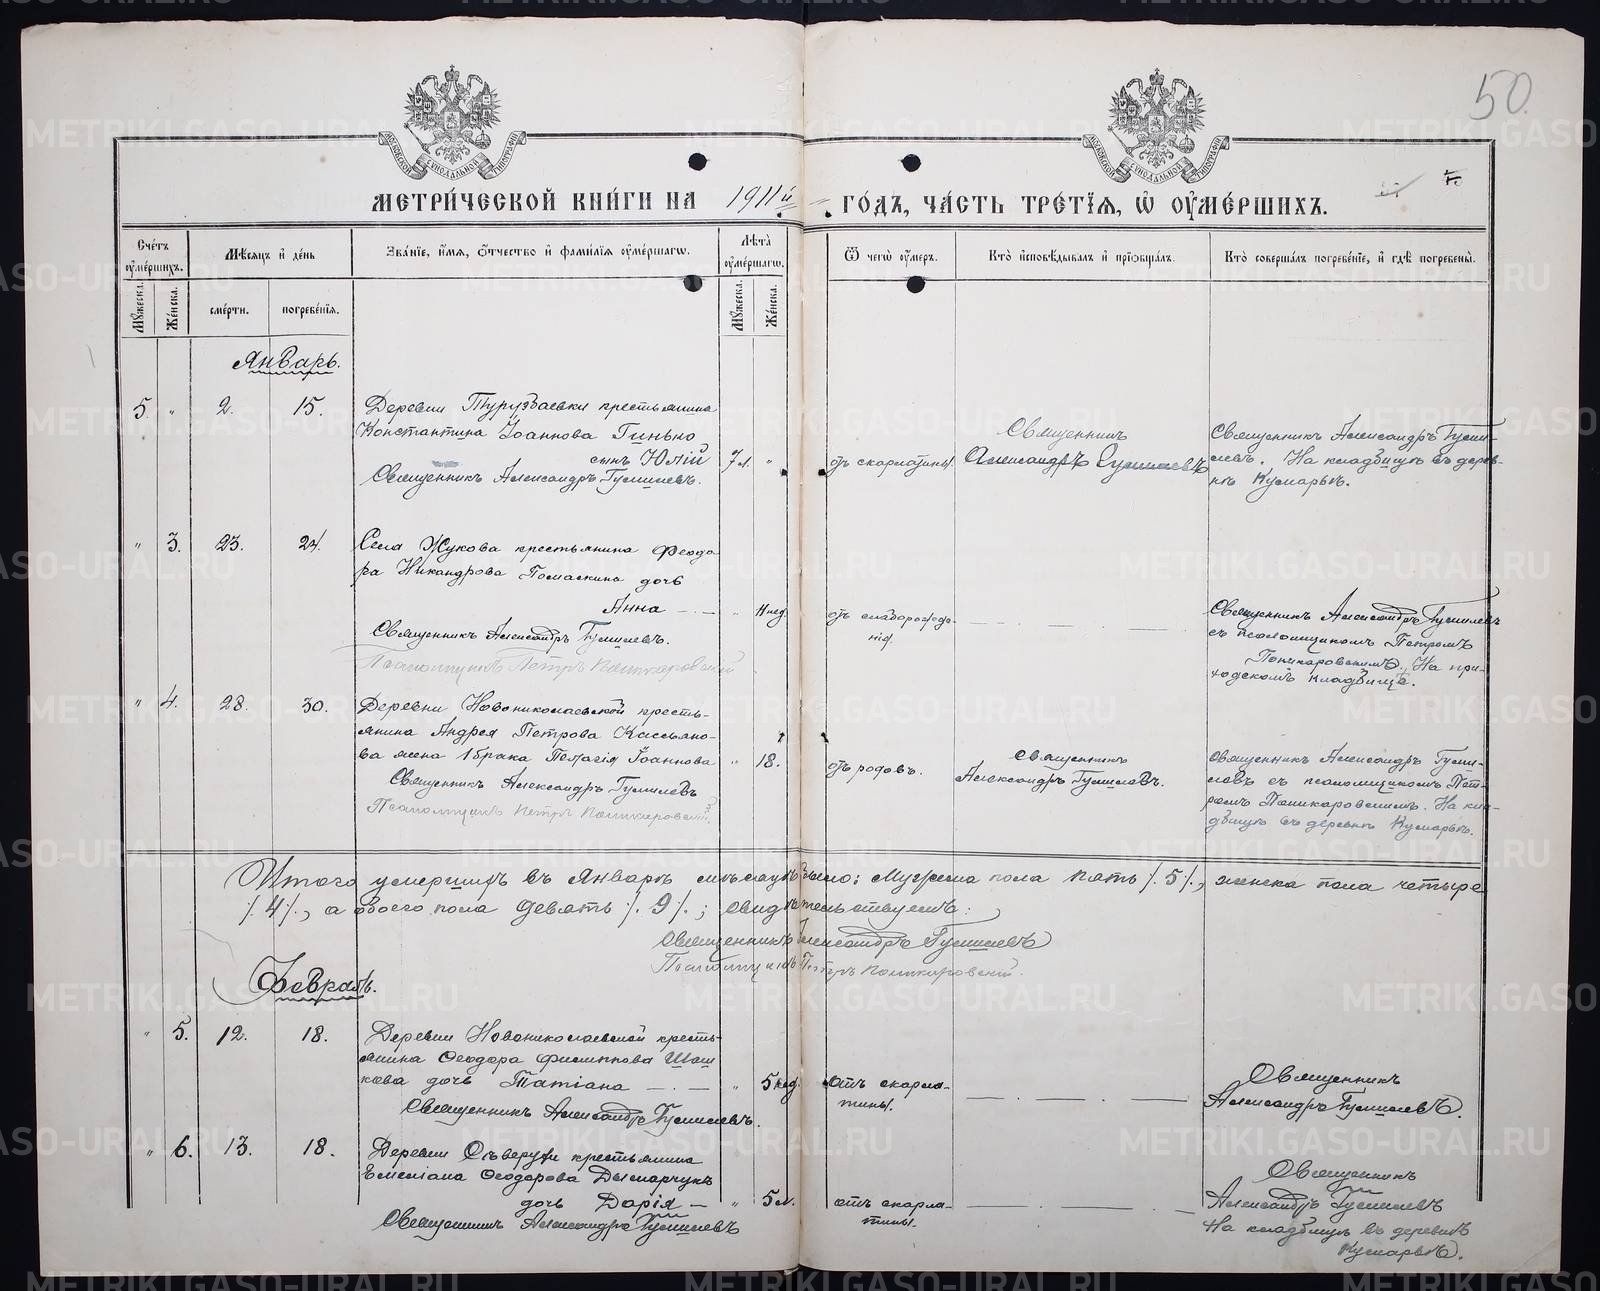 50.
МЕТРИ́ЧЕСКОЙ КНИ́ГИ НА 1911й ГО́ДЪ, ЧА́СТЬ ТРЕ́ТІѦ, Ѡ ОУ҆МЕ́РШИХЪ.
Сче́тъ оу҆ме́ршихъ.
Мѣ́сѧцъ и҆ де́нь
Зва́нїе, и҆́мѧ, ѻ҆́тчество и҆ фами́лїѧ оу҆ме́ршагѡ.
Лѣ́та оу҆ме́ршагѡ.
Ѿ чегѡ̀ оу҆́меръ.
Кто̀ и҆сповѣ́дывалъ и҆ прїѡбща́лъ.
Кто̀ соверша́лъ погребе́нїе, и҆ гдѣ̀ погребены̀.
Мꙋ́жеска.
Же́нска.
сме́рти.
погребе́нїѧ.
Мꙋ́жеска.
Же́нска.
Январь.
5. „ 2. 15.
Деревни крестьянина
Константина Іоаннова Гинько
сынъ Юлій 7 л. „
Священникъ Александръ Гумилевъ.
отъ скарлатины.
Священникъ
Александръ Гумилевъ
Священникъ Александръ Гуми-
левъ. На кладбищѣ въ дерев-
нѣ Кумарьѣ.
„ 3. 23. 24.
Села Жукова крестьянина Феодо-
ра Никандрова дочь
Анна „ 4 нед.
Священникъ Александръ Гумилевъ.
Псаломщикъ Петръ Поникаровский
отъ слаборожде-
нія.
Священникъ Александръ Гумилевъ
съ псаломщикомъ Петромъ
Поникаровскимъ. На при-
ходскомъ кладбищѣ.
„ 4. 28. 30.
Деревни Новониколаевской кресть-
янина Андрея Петрова Касьяно-
ва жена 1 брака Пелагія Іоаннова „ 18.
Священникъ Александръ Гумилевъ
Псаломщикъ Петръ Поникаровский.
отъ родовъ.
Священникъ
Александръ Гумилевъ.
Священникъ Александръ Гуми-
левъ съ псаломщикомъ Пет-
ромъ Поникаровскимъ. На кла-
дбищѣ въ деревнѣ Кумарьѣ.
Итого умершихъ въ Январѣ мѣсяцѣ было: Мужеска пола пять /.5/., женска пола четыре
/.4/., а обоего пола девять /.9/.; свидѣтельствуемъ:
Священникъ Александръ Гумилевъ
Псаломщикъ Петръ Поникаровский.
Февраль.
„ 5. 12. 18.
Деревни Новониколаевской кресть-
янина Ѳеодора Филиппова Шаш-
кова дочь Татіана „ 5 нед.
Священникъ Александръ Гумилевъ.
отъ скарла-
тины.
Священникъ
Александръ Гумилевъ.
„ 6. 13. 18.
Деревни крестьянина
Емеліана Ѳеодорова Дымарчукъ
дочь Дарія „ 5 л.
Священникъ Александръ Гумилевъ
отъ скарла-
тины.
Священникъ
Александръ Гумилевъ
На кладбищѣ въ деревнѣ
Кумарьѣ.
METRIKI.GASO-URAL.RU